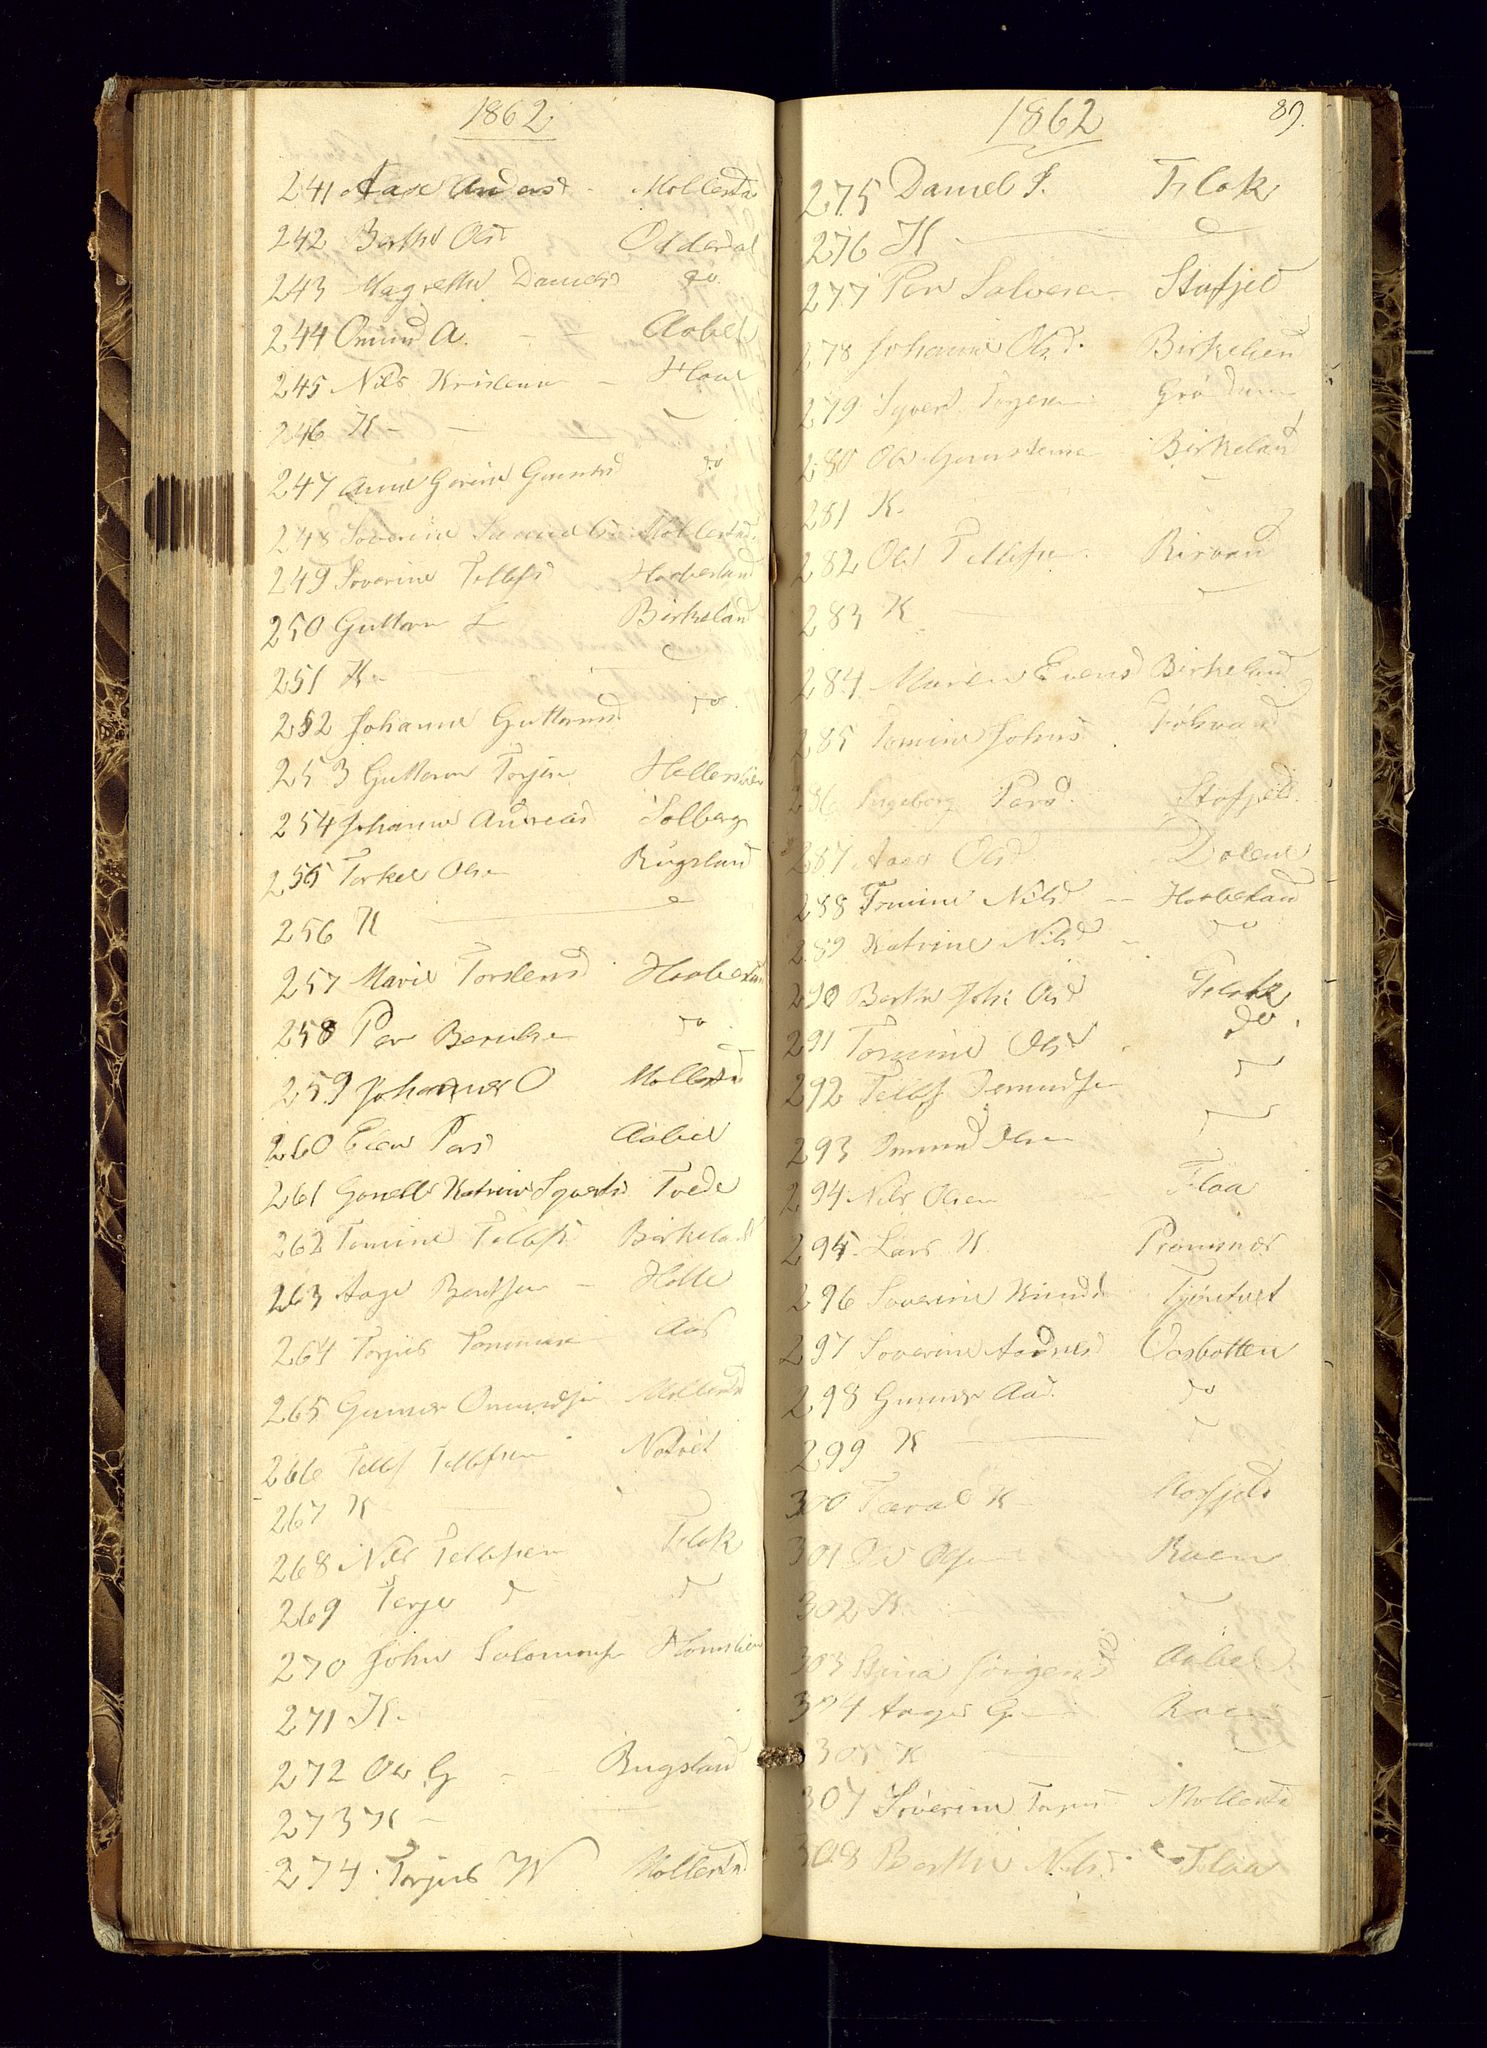 1862
241 Aase Anders - Mollestad
242 Berthe Olsd Oddersdal
243 Magrethe Daniels do
244 Omund A. - Aabel
245 Nils Kristense - Flaae
246 K - -
247 Anne Gorine Gunnersd do
248 Soverine Samuelsd Mollestad
249 Soverine Tellefsd Haabesland
250 Guttorm L Birkeland
251 K -
252 Johanne Guttormsd do
253 Guttorm Torjese Hellerslien
254 Johanne Andreasd Solberg
255 Torkel Olse Rugsland
256 K
257 Marie Torstensd Haabesland
258 Per Berulse do
259 Johannes O Mollestad
260 Elen Persd Aabel
261 Gonelle Katrine Sywertsd Tvede
262 Tomine Tellefsd Birkeland
263 Aage Bentsen - Holte
264 Torjus Tommese Aas
265 Gunner Omundse Mollestad
266 Tellef Tellefsen Natvet
267 K
268 Nils Tellefsen Flak
269 Terje d d
270 John Salomonse Homslien
271 K -
272 Ole G - - Rugsland
273 K -
274 Torjus K Mollestad
1862 89.
275 Daniel J. Flak
276 K - d
277 Per Salvese Stufjeld
278 Johanne Olsd. Birkeland
279 Syvert Torjesen Grødum
280 Ole Gunstense Birkeland
281 K -
282 Ole Tellefse Risvand
283 K
284 Maren Evensd Birkeland
285 Tomine Johnsd
286 Ingeborg Persd. Stofjeld
287 Aase Olsd Dalene
288 Tomine Nilsd - - Haabesland
289 Katrine Nilsd - do
290 Berthe Joh: Olsd Flak
291 Tomine Olsd do
292 Tellef Osmundse d
293 Omund Olsen d
294 Nils Olsen Flaa
295 Lars K Prommer
296 Soverine Knudsd
297 Soverine Aadnesd Oasbotten
298 Gunner Aad. do
299 K d
300 Tarald K
301 Ole Olse Raen
302 K. d
303 Stina Jørgensd Aabel
304 Aage G Raen
305 K
307 Sóverine Torjus Mollestad
308 Berthe Nilsd Flaa